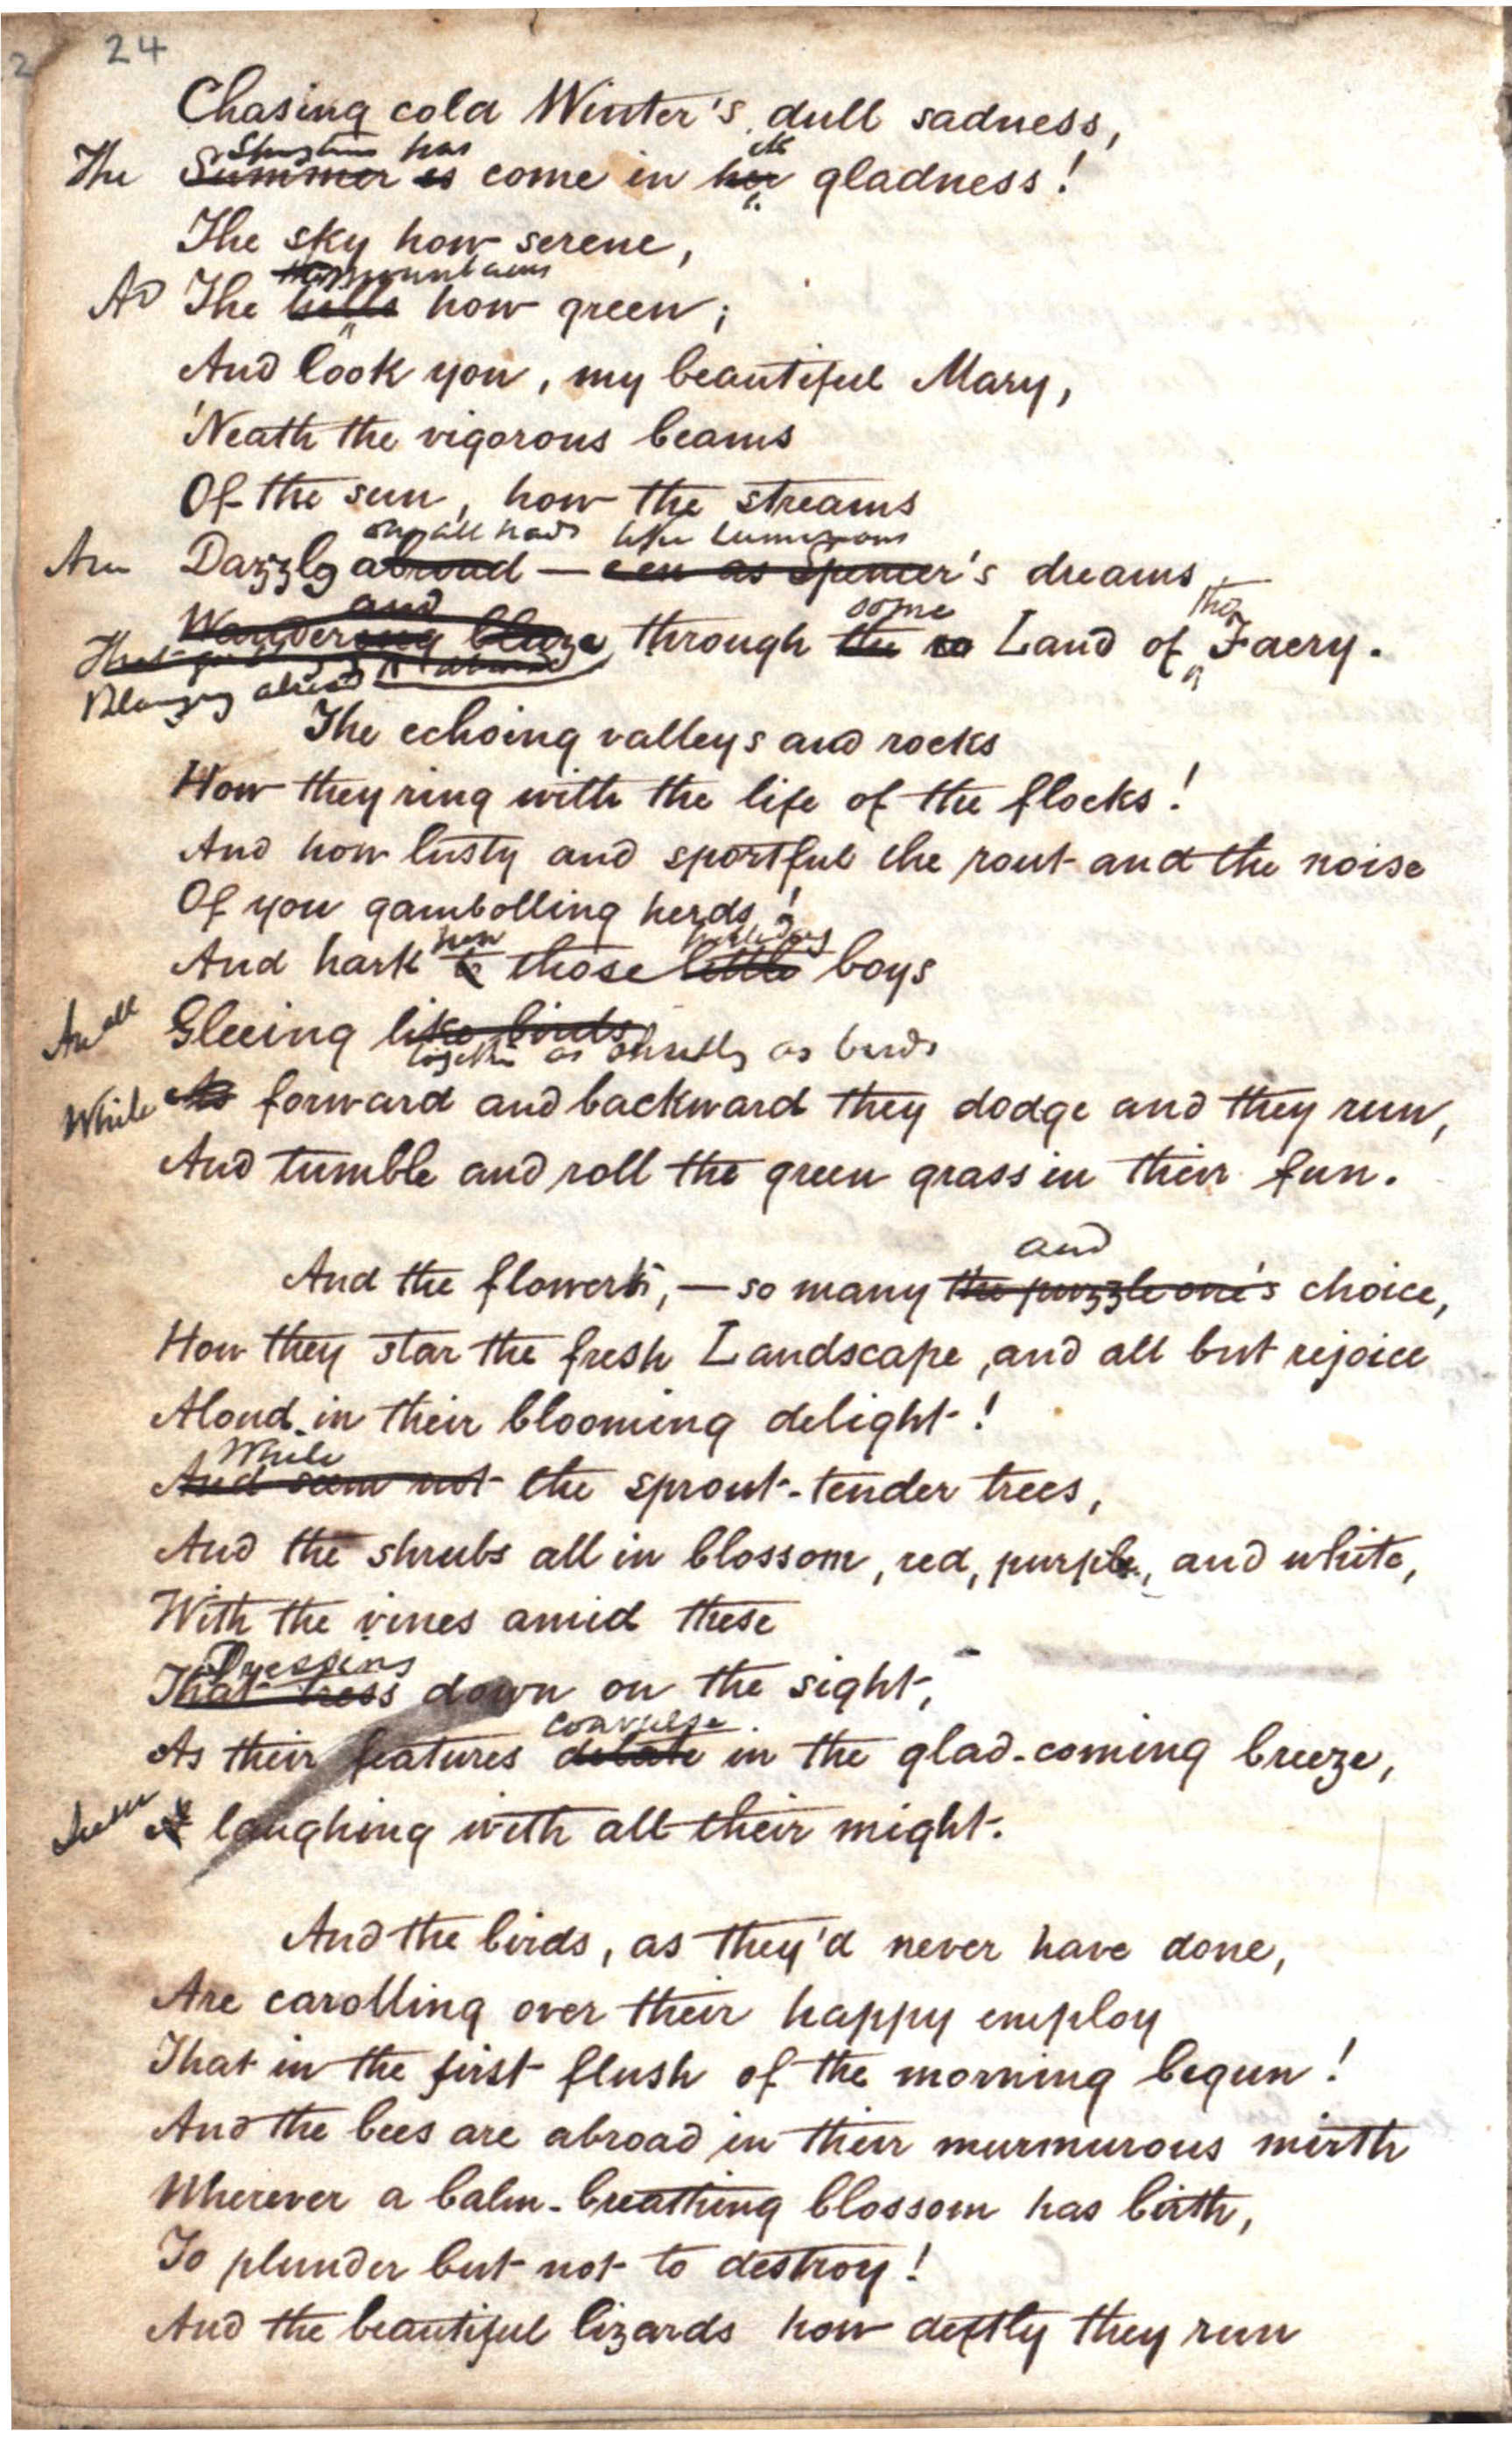 24
Chasing cold Winter's dull sadness,
has its
The Summer is come in her gladness!
The sky how serene,
mountains
As The hills how green;
And look you, my beautiful Mary,
'Neath the vigorous beams
Of the sun, how the streams
on all like luminous
Dazzle abroad — een as Spencer's dreams
and some
Wandering blaze through the Land of Faery.
Blazing
The echoing valleys and rocks
How they ring with the life of the flocks!
And how lusty and sportful the rout and the noise
Of you gambolling herds!
how
And hark to those little boys
all Gleeing like birds
together as as birds
While As forward and backward they dodge and they run,
And tumble and roll the green grass in their fun.
and
And the flowers, — so many the puzzle one's choice,
How they star the fresh Landscape, and all but rejoice
Aloud in their blooming delight!
While
And seem not the sprout-tender trees,
And the shrubs all in blossom, red, purple, and white,
With the vines amid these
Pressing
That down on the sight,
convulse
As their features dilate in the glad-coming breeze,
laughing with all their might.
And the birds, as they'd never have done,
Are carolling over their happy employ
That in the first flush of the morning begun!
And the bees are abroad in their murmurous mirth
Wherever a balm-breathing blossom has birth,
To plunder but not to destroy!
And the beautiful lizards how deftly they run